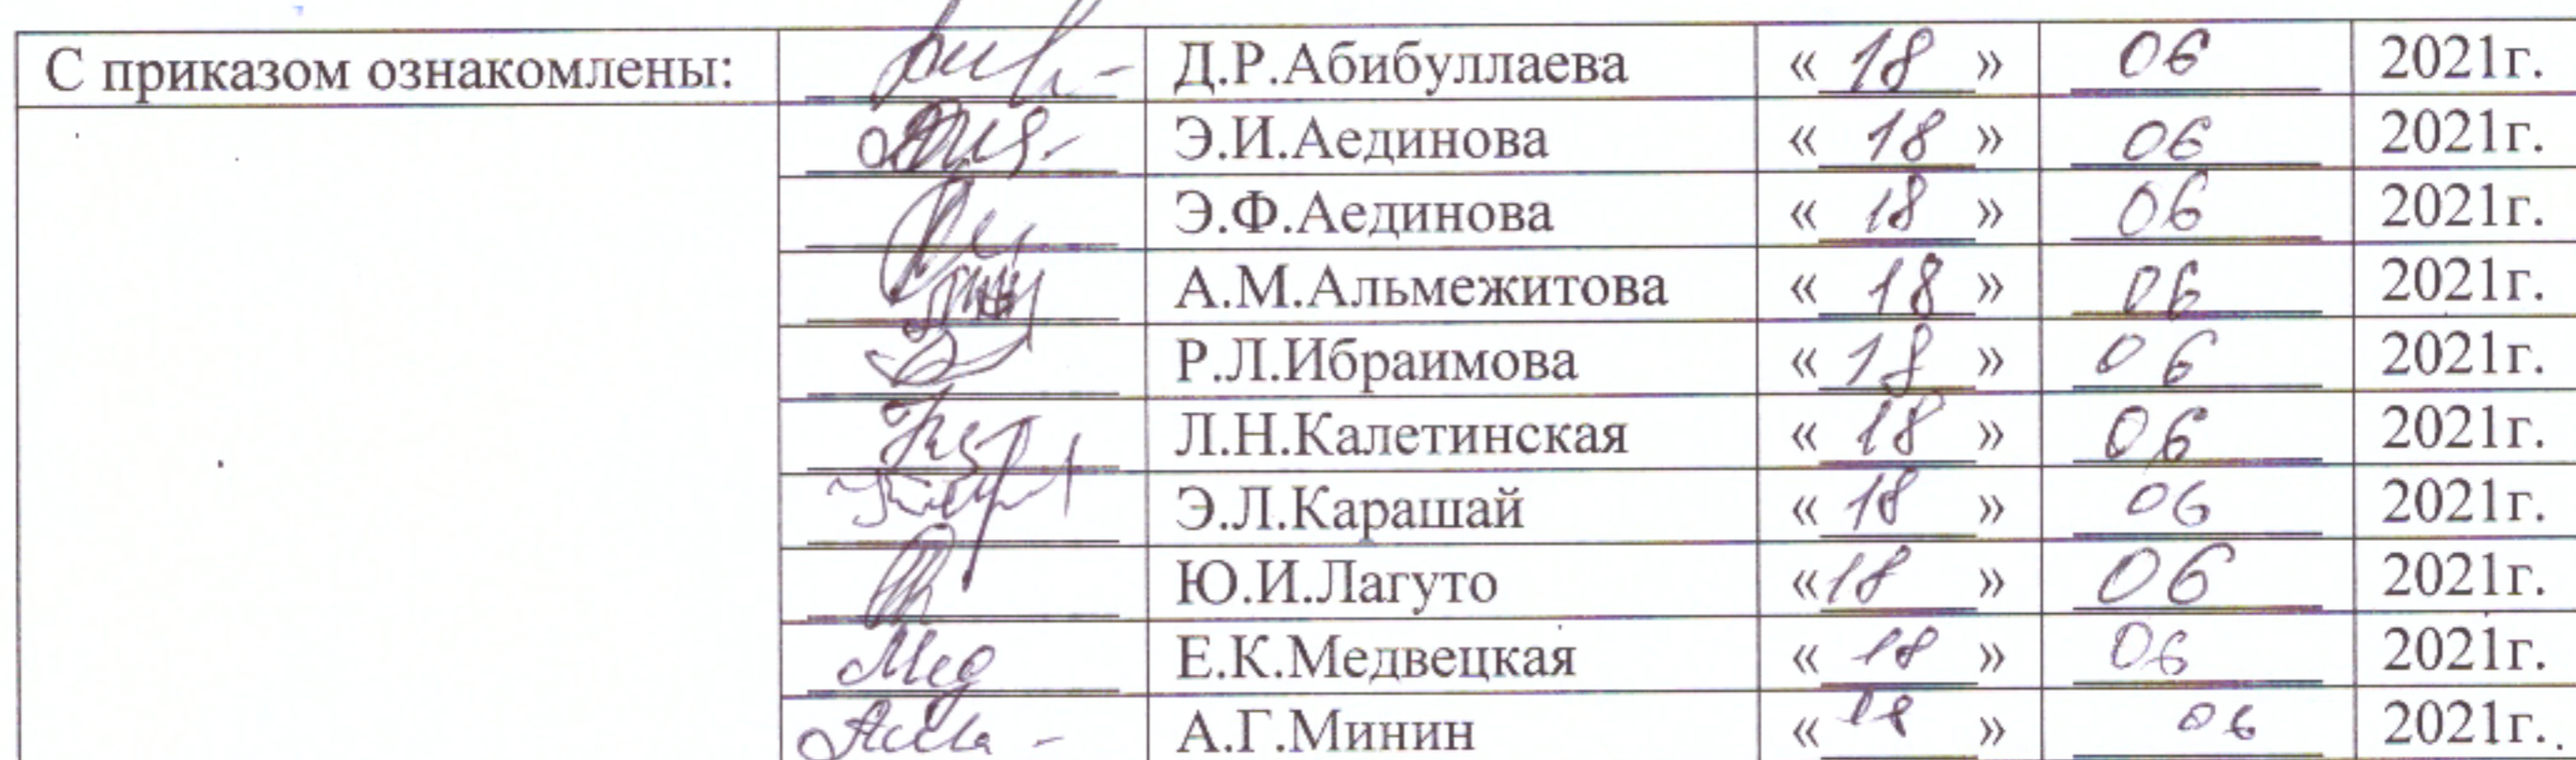 С приказом ознакомлены: Д.Р.Абибуллаева « 18 » 06 2021г.
Э.И.Аединова « 18 » 06 2021г.
Э.Ф.Аединова « 18 » 06 2021г.
А.М.Альмежитова « 18 » 06 2021г.
Р.Л.Ибраимова « 18 » 06 2021г.
Л.Н.Калетинская « 18 » 06 2021г.
Э.Л.Карашай « 18 » 06 2021г.
Ю.И.Лагуто « 18 » 06 2021г.
Мед Е.К.Медвецкая « 18 » 06 2021г.
А.Г.Минин « 18 » 06 2021г.